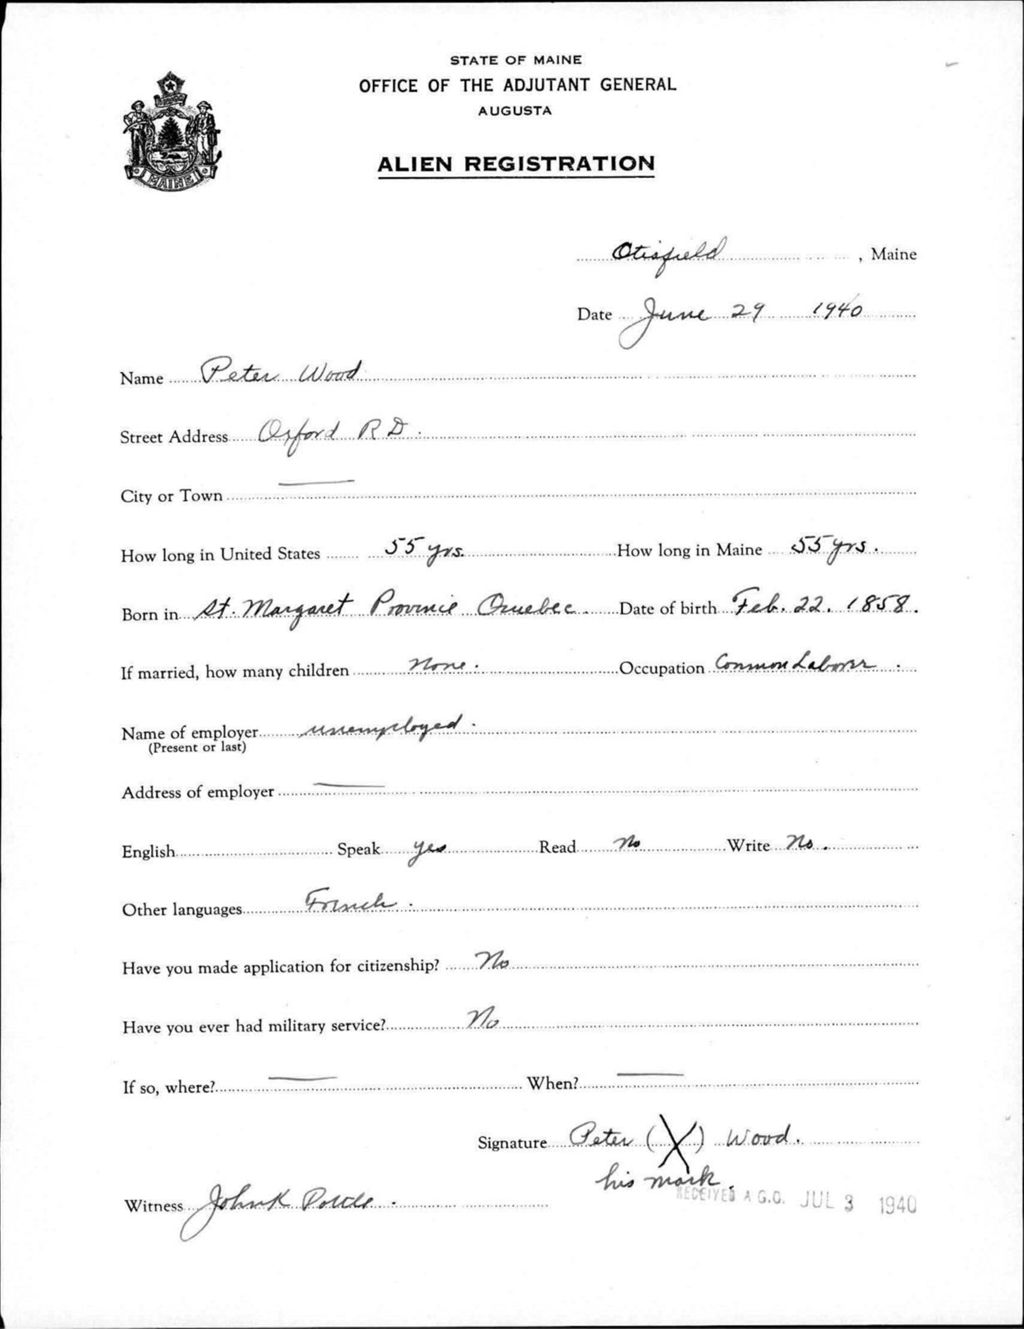 STATE OF MAINE
OFFICE OF THE ADJUTANT GENERAL
AUGUSTA
MAINE
ALIEN REGISTRATION
Otisfield, Maine
Date June 29 1940
Name Peter Wood
Street Address Oxford R D.
City or Town —
How long in United States 55 yrs. How long in Maine 55 yrs.
Born in St. Margaret Province Quebec. Date of birth Feb. 22. 1858.
If married, how many children None. Occupation Common Laborer.
Name of employer unemployed.
(Present or last)
Address of employer —
English Speak yes Read No Write No.
Other languages French.
Have you made application for citizenship? No
Have you ever had military service? No
If so, where? — When? —
Signature Peter (X) Wood.
his mark.
Witness John K
RECEIVED A.G.O. JUL 3 1940